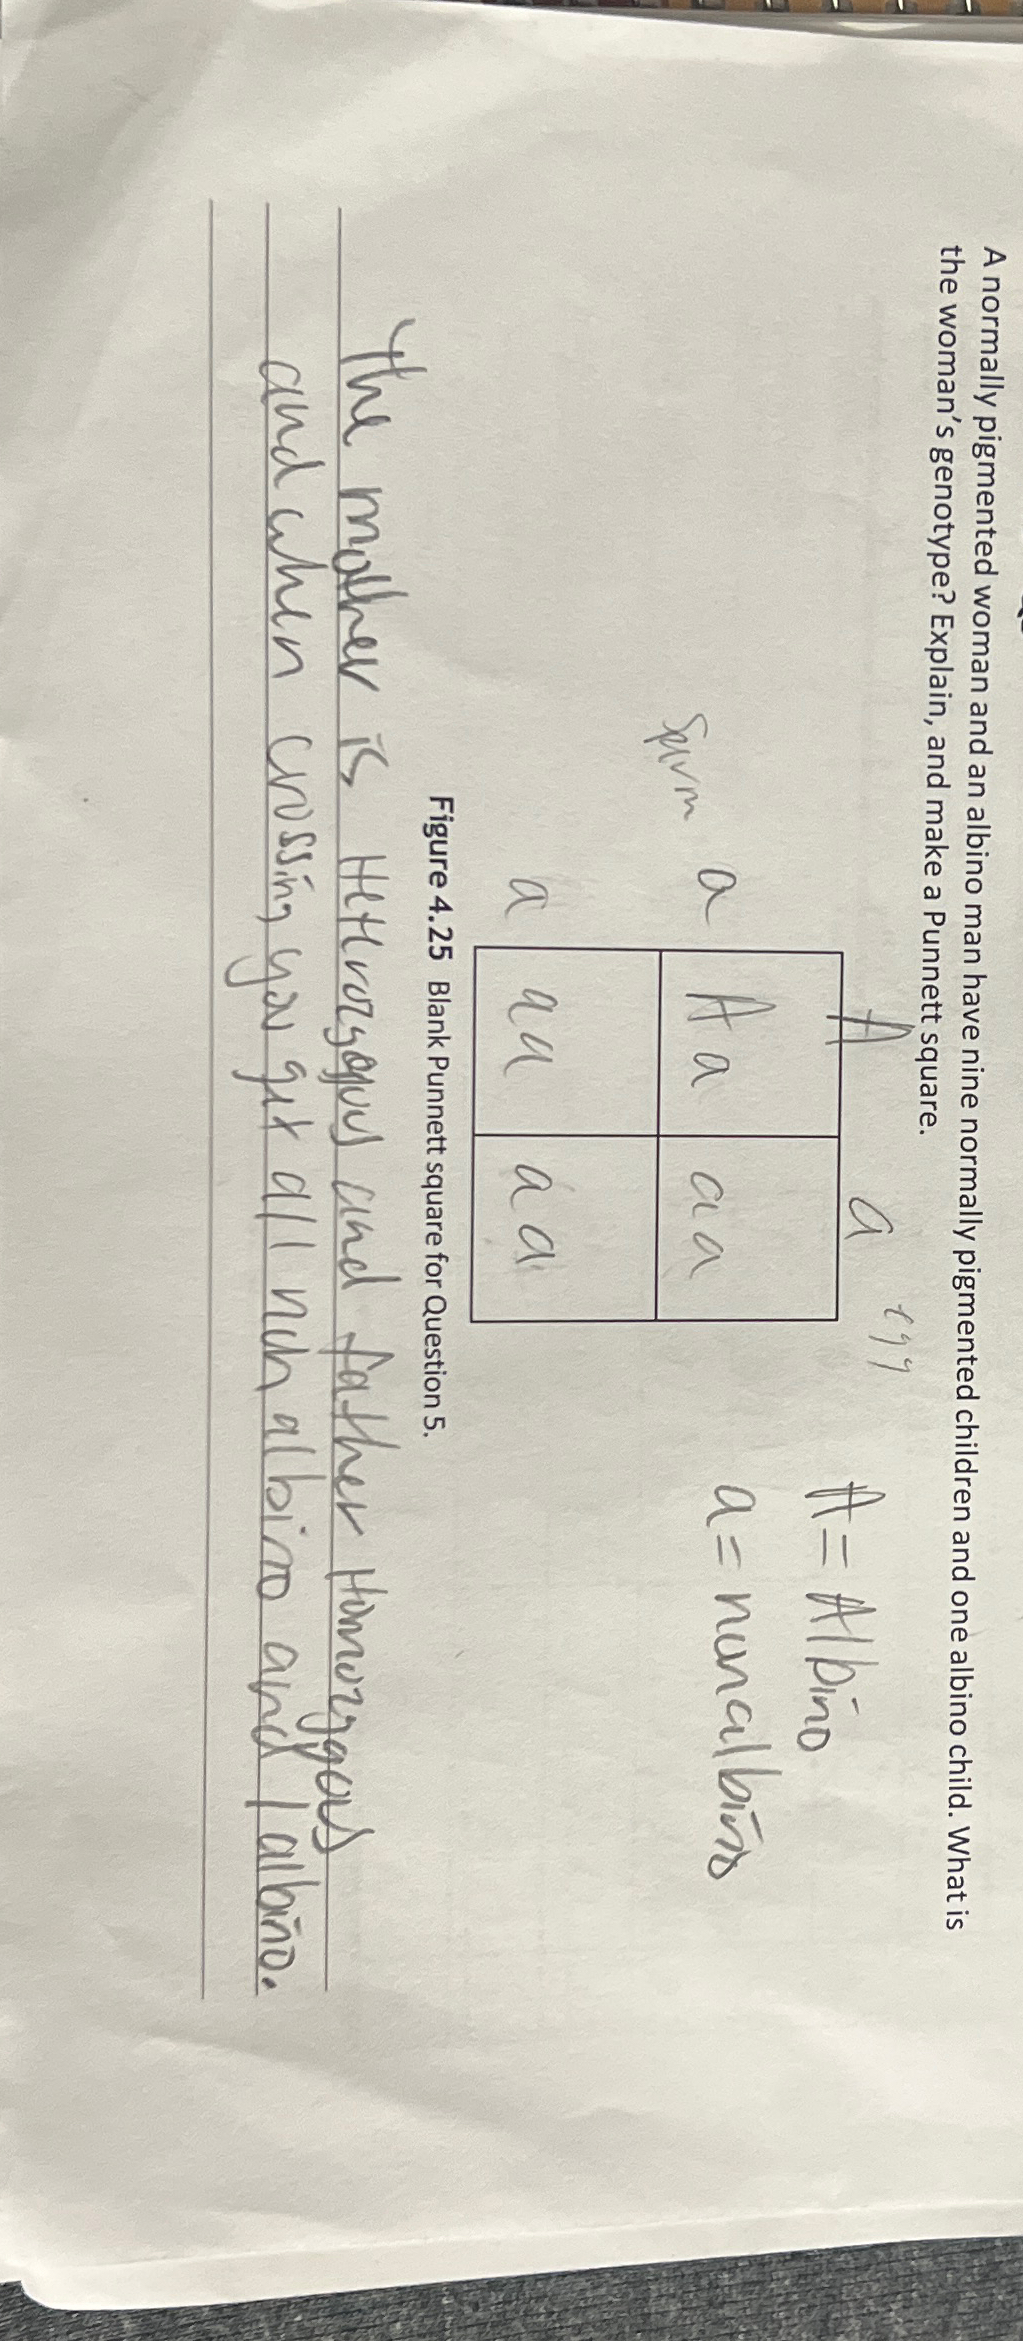 A normally pigmented woman and an albino man have nine normally pigmented children and one albino child. What is
the woman's genotype? Explain, and make a Punnett square.
A a egg
A = Albino
a = nonalbino
Sperm a Aa aa
a aa aa
Figure 4.25 Blank Punnett square for Question 5.
The mother is Hetrozygous and father Homozygous
and when crossing you get all non albino and 1 albino.